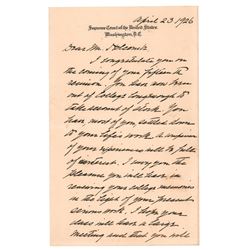 April 23 1926
Supreme Court of the United States,
Washington, D.C.
Dear Mr.
I congratulate you on
the coming of your fifteenth
reunion. You have now been
out of College long enough to
take account of stock. You
have, most of you, settled down
to your life's work. A reunion
of your experiences will be full
of interest. I envy you the
pleasure you will have in
renewing your college memories
in the light of your present
serious work. I hope your
class will have a large
meeting and that you will